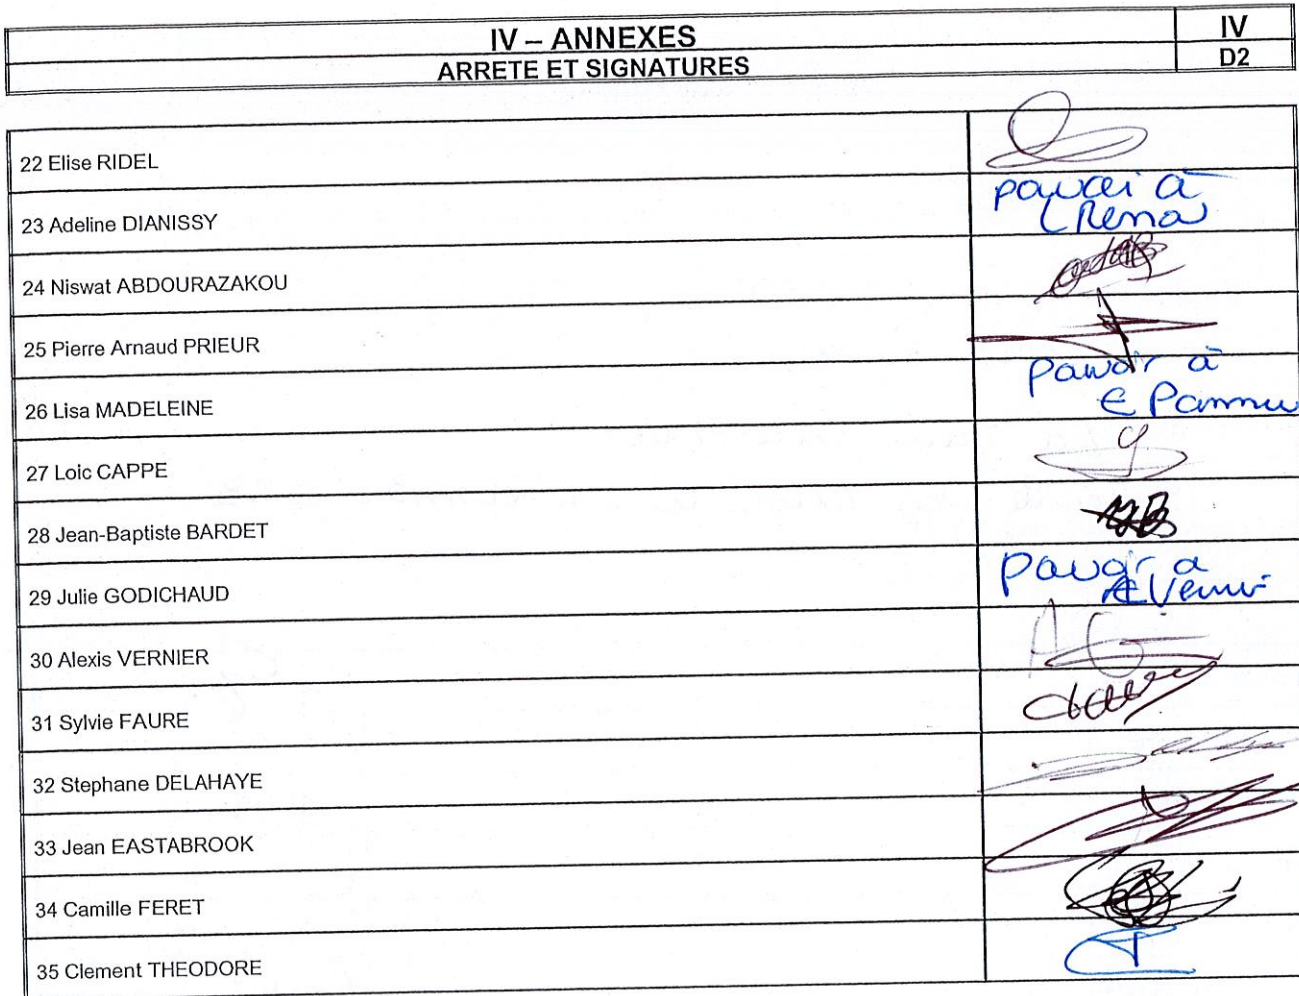 IV – ANNEXES
IV
ARRETE ET SIGNATURES
D2
22 Elise RIDEL
23 Adeline DIANISSY
pouvoir à
24 Niswat ABDOURAZAKOU
25 Pierre Arnaud PRIEUR
26 Lisa MADELEINE
pouvoir à
27 Loic CAPPE
28 Jean-Baptiste BARDET
29 Julie GODICHAUD
pouvoir a
30 Alexis VERNIER
31 Sylvie FAURE
32 Stephane DELAHAYE
33 Jean EASTABROOK
34 Camille FERET
35 Clement THEODORE